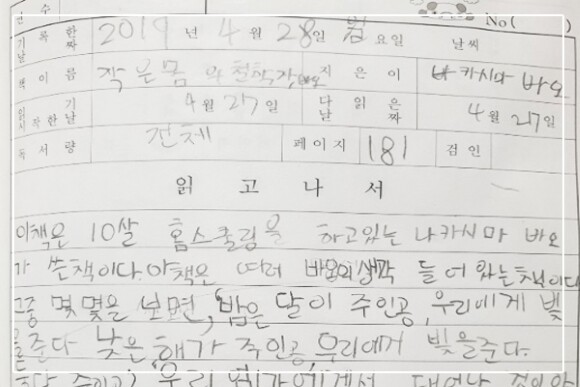 No(          )
기록한 날짜 2019 년 4 월 28일 월 요일 날씨
책이름 작은몸의철학자, 바오 지은이 나카시마 바오
읽기 시작한날 4월 27일 다 읽은 날짜 4월 27일
독서량 전체 페이지 181 검인
읽고나서
이책은 10살 홈스쿨링을 하고있는 나카시마 바오
가 쓴책이다. 이책은 바오의생각 들어 있는책이다
그중 몇몇을 보면, 밤은 달이 주인공, 우리에게 빛
을준다 낮은 해가 주인공, 우리에게 빛을준다.